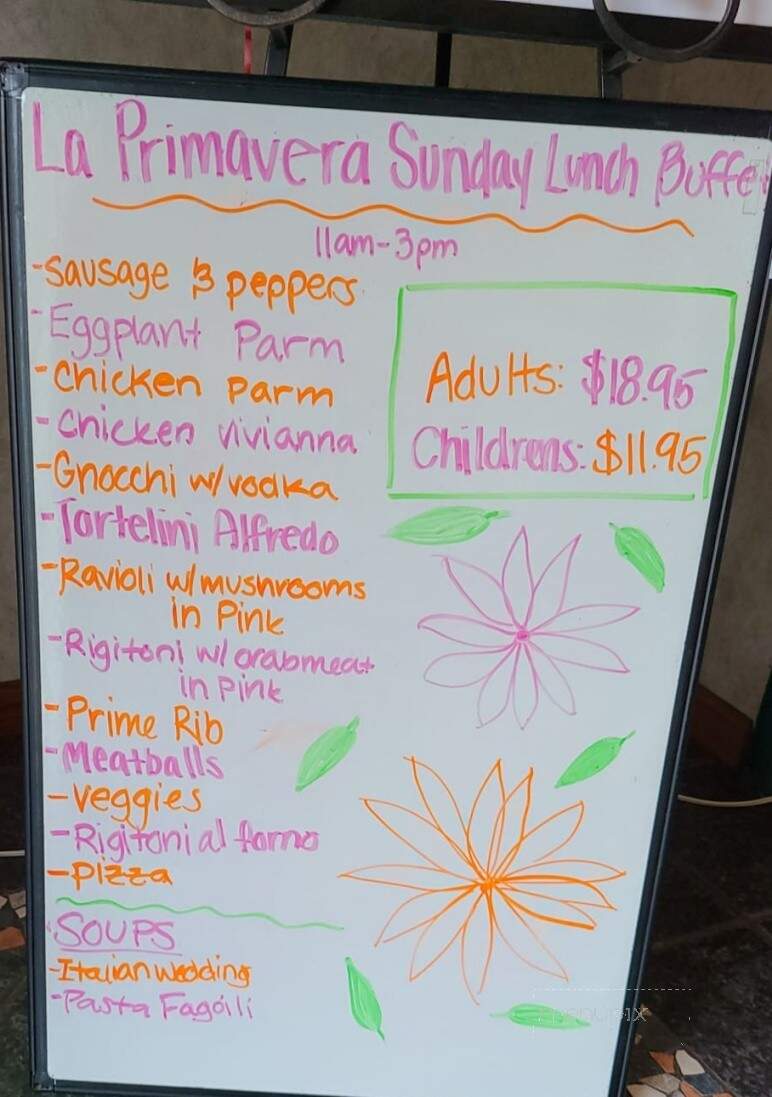 La Primavera Sunday Lunch Buffet
11am-3pm
-Sausage & peppers
-Eggplant Parm
-Chicken parm
-Chicken vivianna
-Gnocchi w/vodka
-Tortelini Alfredo
-Ravioli w/mushrooms
in Pink
-Rigitoni w/ crabmeat
in pink
-Prime Rib
-Meatballs
-veggies
-Rigitoni al forno
-pizza
Adults: $18.95
Childrens: $11.95
SOUPS
-Italian wedding
-Pasta Fagoili